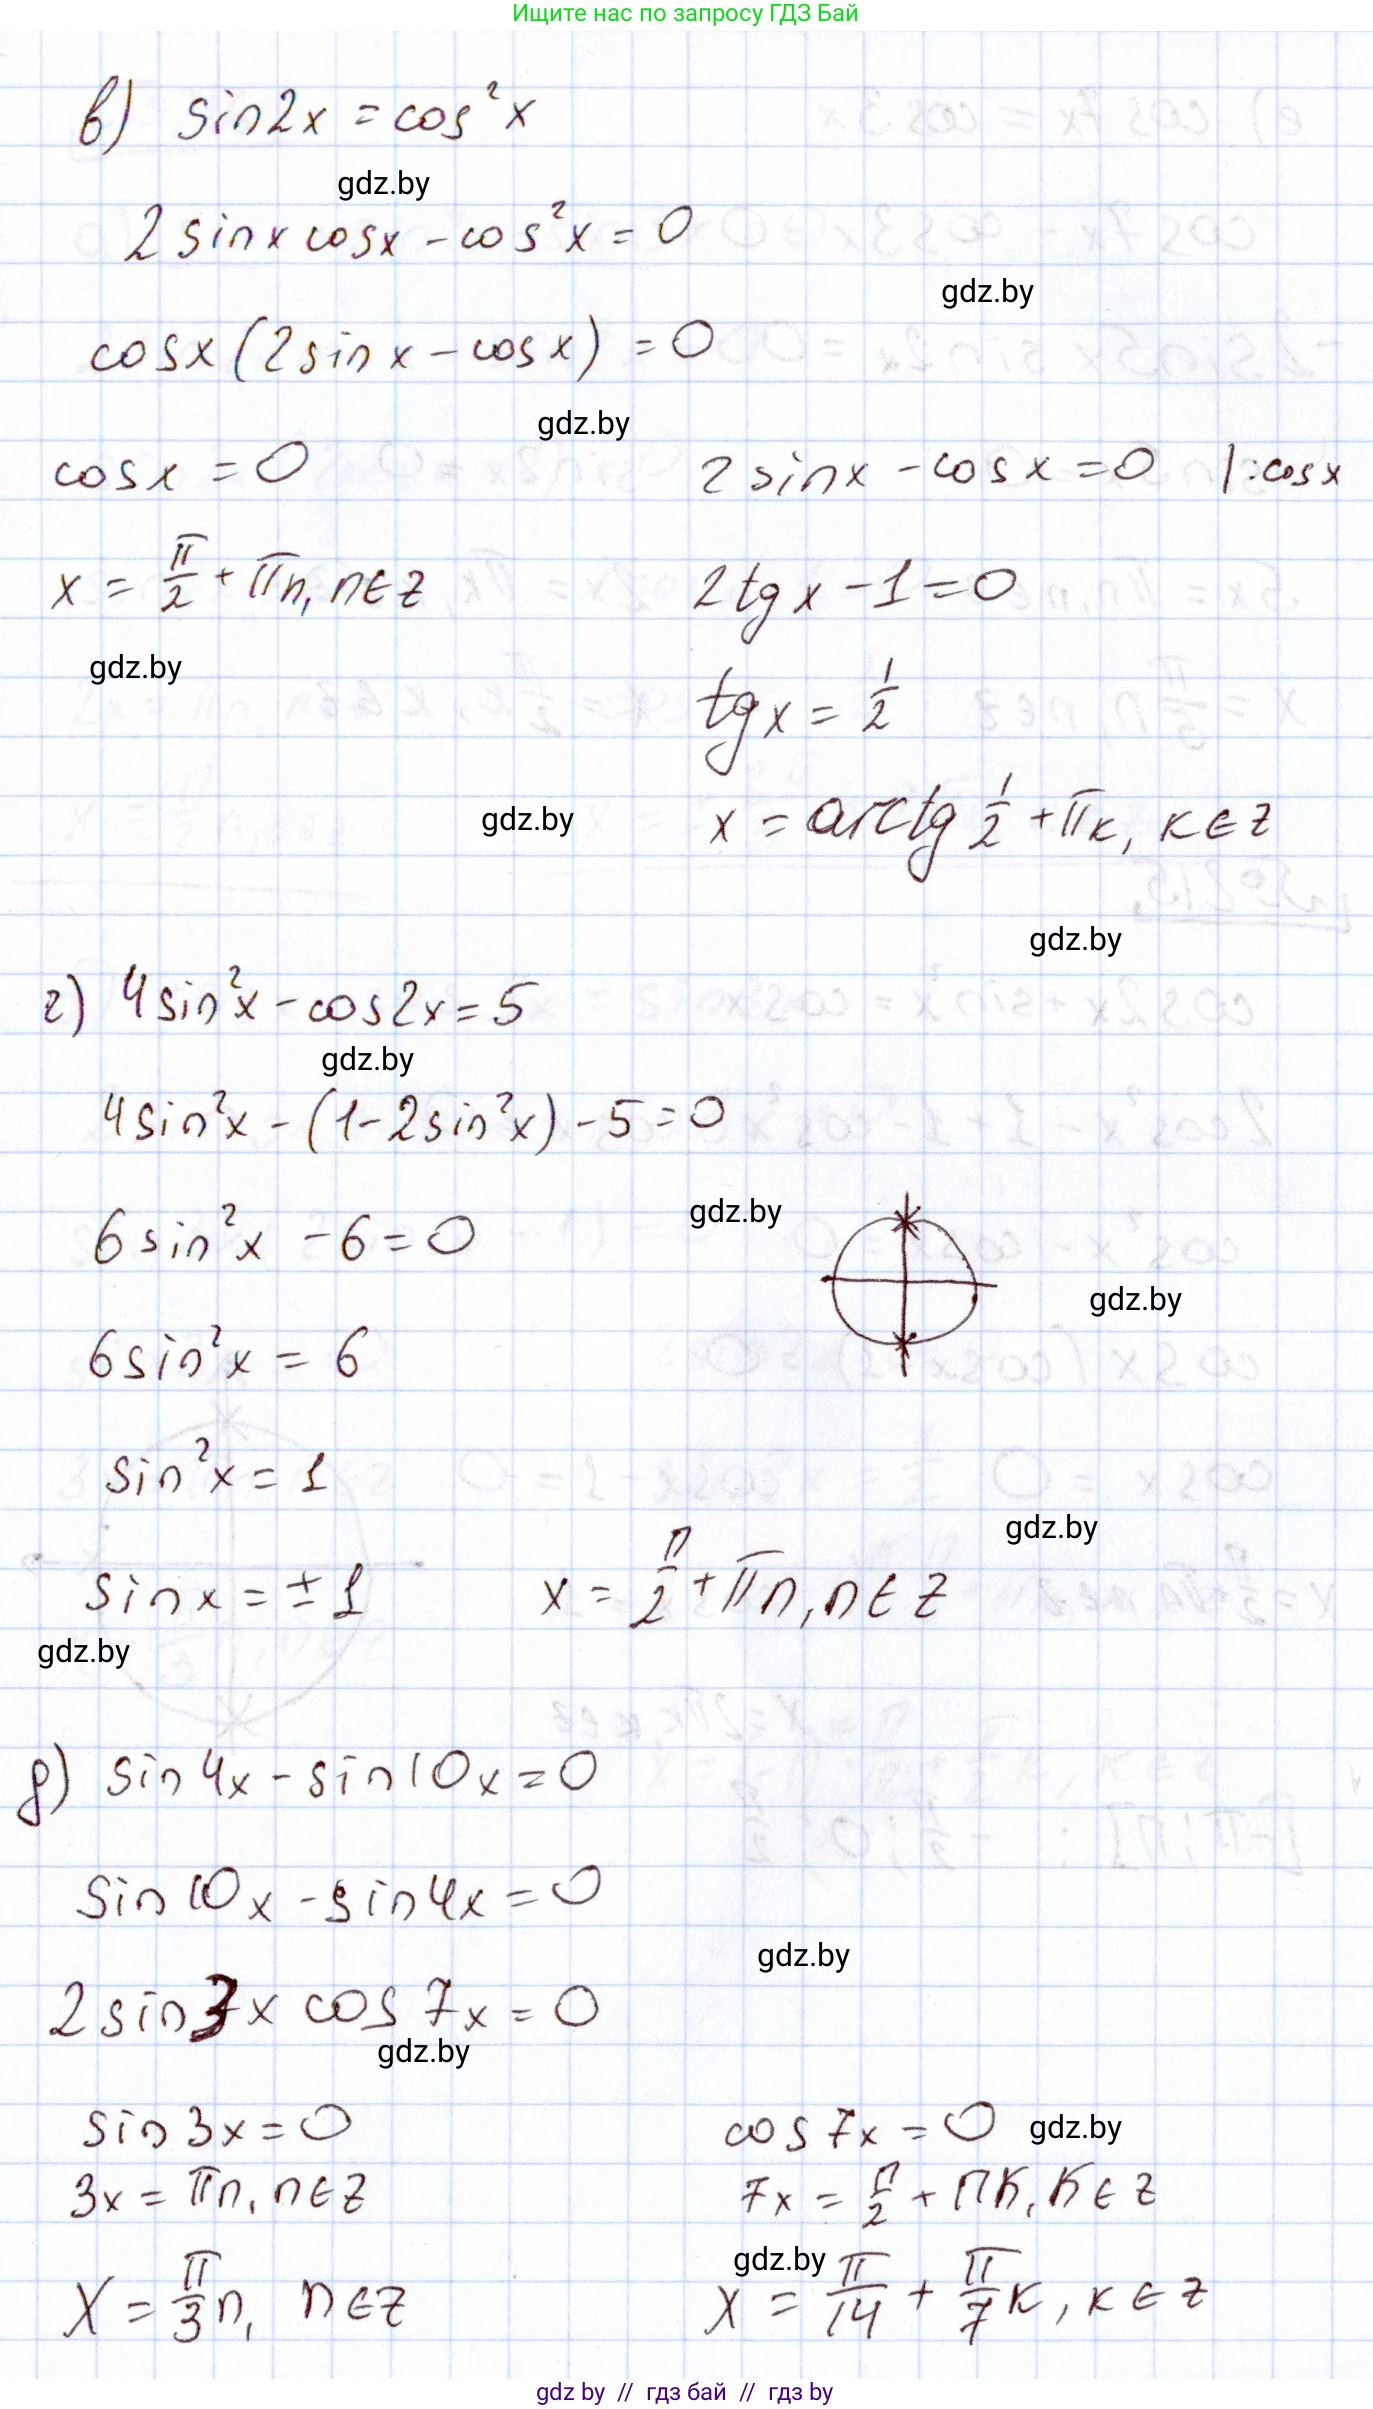 Ищите нас по запросу ГДЗ Бай
в) sin2x = cos²x
gdz.by
2 sinx cosx - cos²x = 0
gdz.by
cosx (2sinx - cosx) = 0
gdz.by
cosx = 0
2 sinx - cosx = 0 | :cosx
x = π/2 + πn, n∈Z
2tgx - 1 = 0
gdz.by
tgx = 1/2
gdz.by
x = arctg 1/2 + πк, к∈Z
gdz.by
г) 4sin²x - cos2x = 5
gdz.by
4sin²x - (1-2sin²x) - 5 = 0
gdz.by
6sin²x - 6 = 0
gdz.by
6sin²x = 6
sin²x = 1
gdz.by
sinx = ±1
x = π/2 + πn, n∈Z
gdz.by
д) sin4x - sin10x = 0
sin10x - sin4x = 0
gdz.by
2sin3x cos7x = 0
gdz.by
sin3x = 0
cos7x = 0
gdz.by
3x = πn, n∈Z
7x = π/2 + πк, к∈Z
gdz.by
x = π/3 n, n∈Z
x = π/14 + π/7 к, к∈Z
gdz by // гдз бай // гдз by